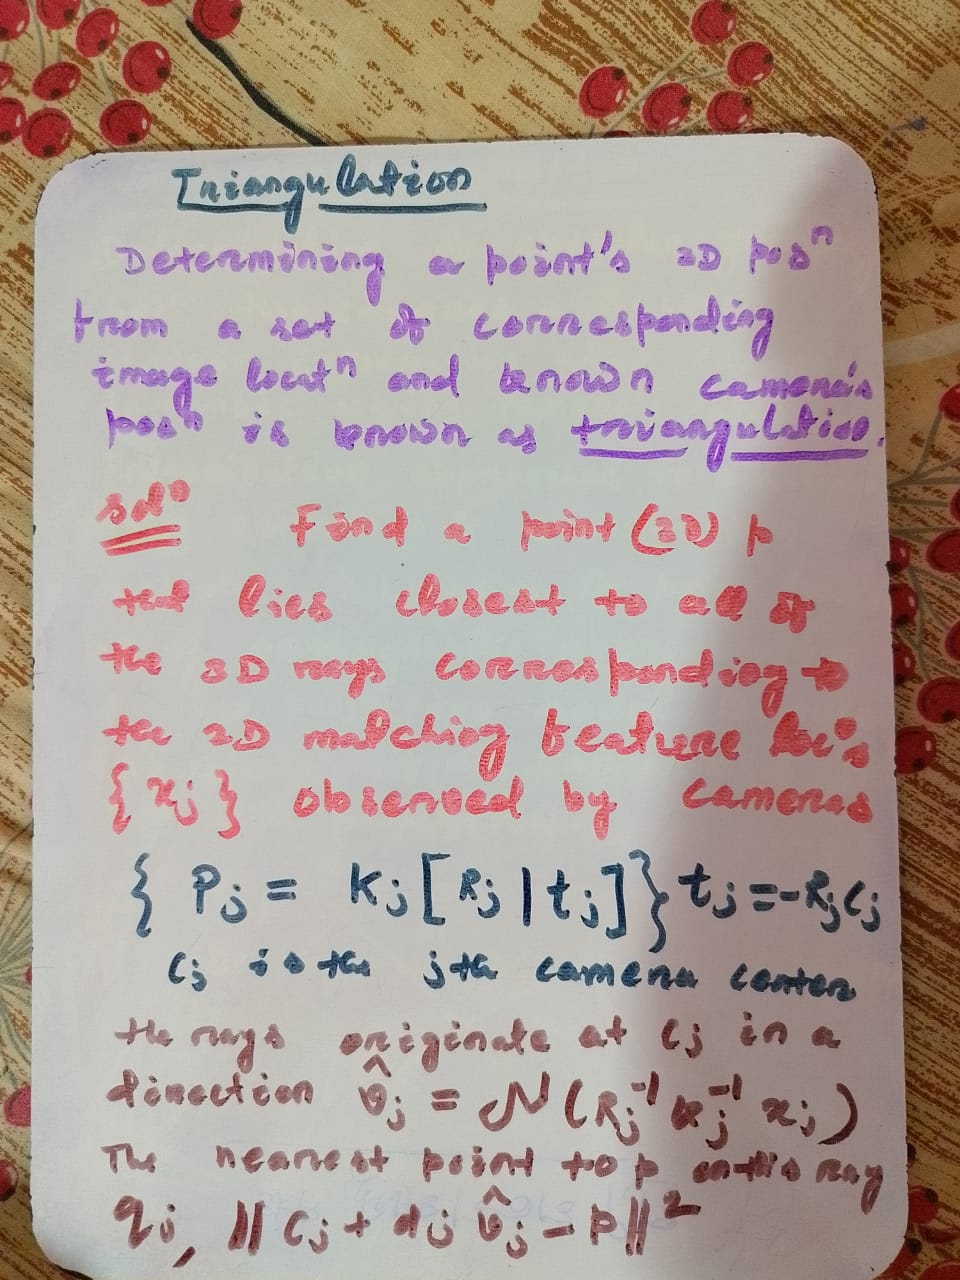 Triangulation
Determining a point's 3D posⁿ
from a set of corresponding
image locatⁿ and known camera's
posⁿ is known as triangulation.
solⁿ Find a point (3D) p
that lies closest to all of
the 3D rays corresponding to
the 2D matching feature loc's
{xj} observed by cameras
{Pj = Kj [Rj | tj]} tj = -Rj Cj
Cj is the jth camera center
the rays originate at Cj in a
direction v̂j = N(Rj⁻¹ Kj⁻¹ xj)
The nearest point to p on this ray
qj, ||Cj + dj v̂j - p||²